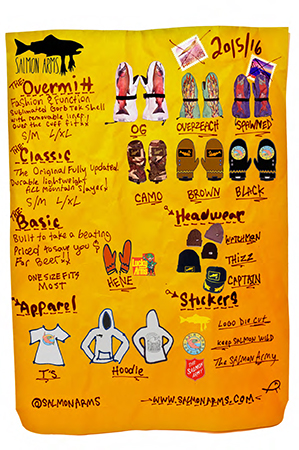 SALMON ARMS
20/5/16
THE Overmitt
Fashion & Function
Sublimated Garb Tek shell
with removable liner &
Over the Cuff fit xx
S/M L/XL
OG
OVERREACH
SPAWNED
THE Classic
The Original Fully Updated
Durable lightweight
All Mountain Slayer
S/M L/XL
CAMO
BROWN
BLACK
THE Basic
Built to take a beating
Priced to save you $
For Beer
ONE SIZE FITS
MOST
HEWE
Headwear
THIZZ
CAPTAIN
Apparel
T'S
Hoodie
Stickers
LOGO DIE CUT
KEEP SALMON WILD
The Salmon Army
THE SALMON ARMY
@SALMONARMS
WWW.SALMONARMS.COM